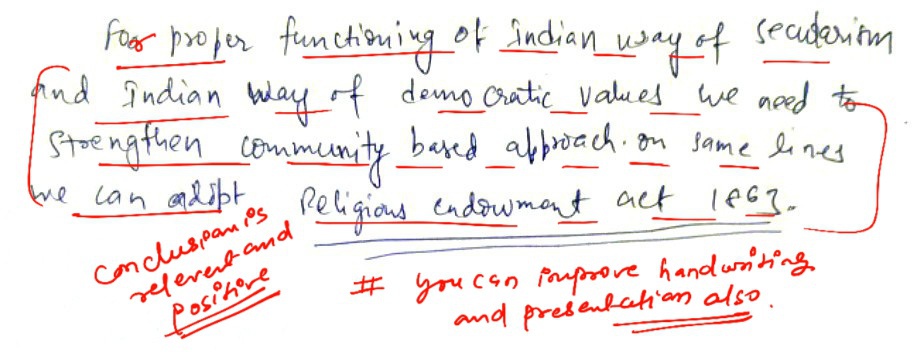 For proper functioning of Indian way of secularism
and Indian way of democratic values we need to
strengthen community based approach. on same lines
we can adopt Religious endowment act 1863.
conclusion is
relevent and
positive
# you can improve handwriting
and presentation also.